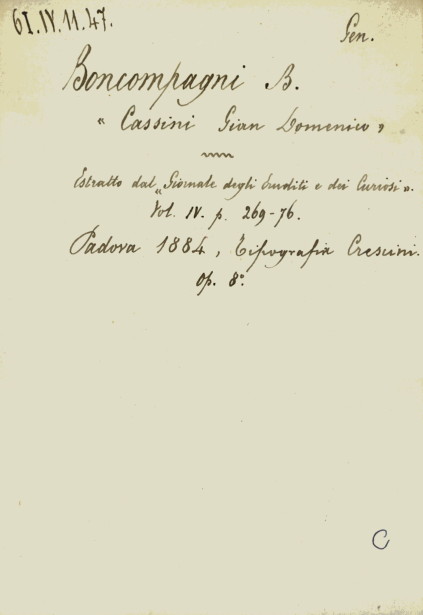 61.IV.11.47.
Gen.
Boncompagni B.
"Cassini Gian Domenico"
Estratto dal "Giornale degli Eruditi e dei Curiosi".
Vol. IV. p. 269-76.
Padova 1884, Tipografia Crescini.
Op. 8°.
C